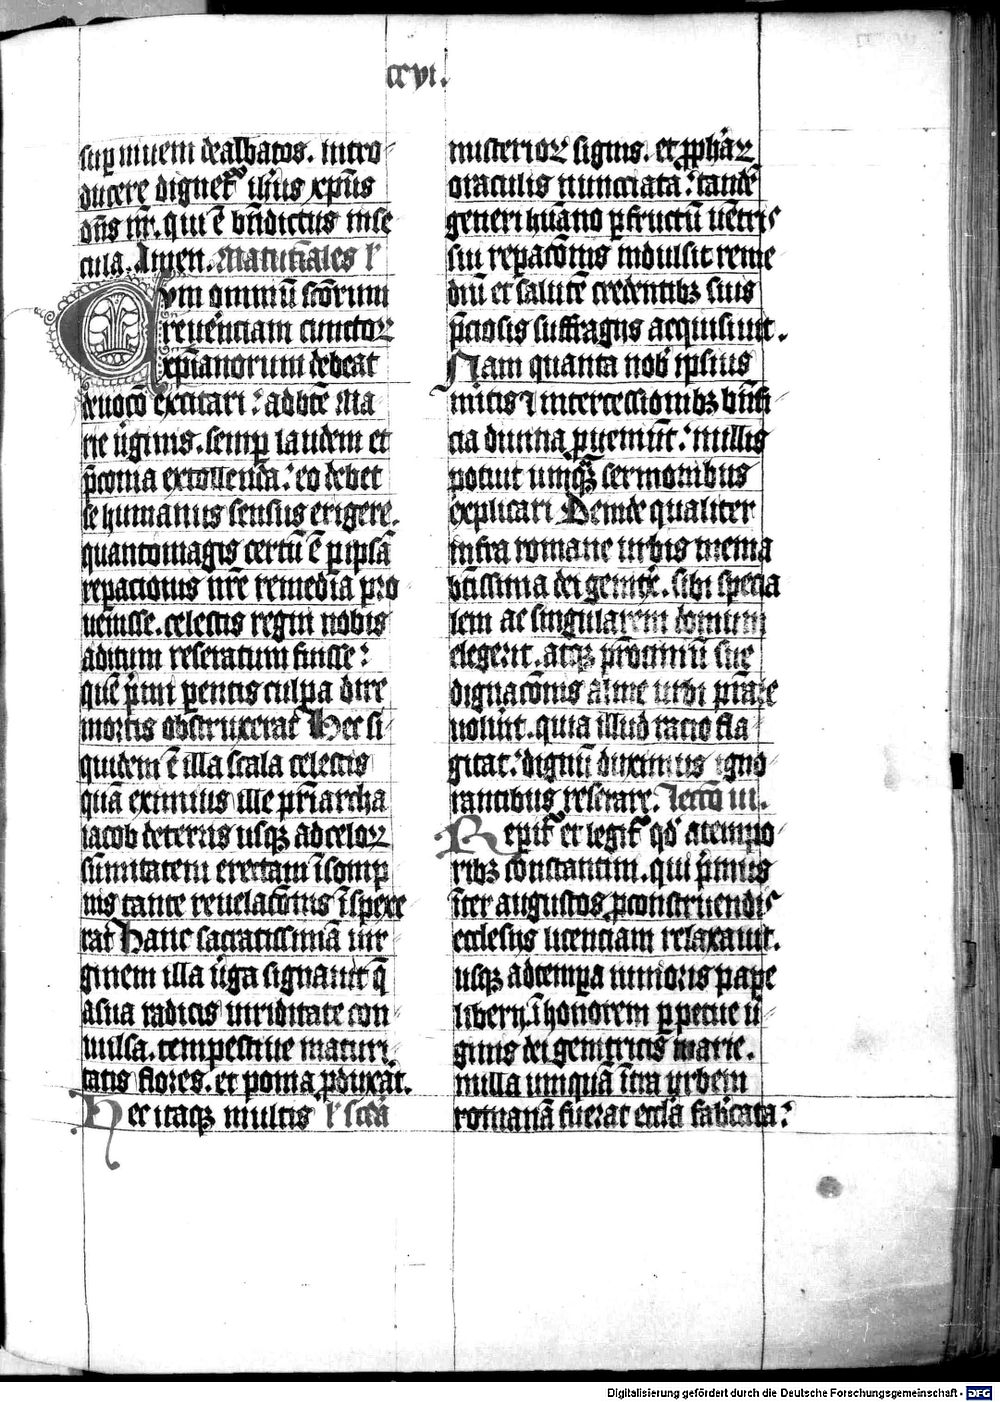 ccvi.
suꝑ niuem dealbatos. intro-
ducere dignet᷑ ih̄us xp̄us
dn̄s nr̄. qui ē bn̄dictus in se-
cula. Amen. Matutīales l'
Cum omniū scōrum
reuerenciam cunctoꝝ
xp̄ianorum debeat
deuocō excitari : ad bt̄e Ma-
rie ūginis. semꝑ laudem et
p̄conia extollenda : eo debet
se humanus sensus erigere.
quantomagis certū ē ꝑ ipsā
reparacionis nr̄e remedia pro-
uenisse. celestis regni nobis
aditum reseratum fuisse :
quē p̄mi ꝑentis culpa dire
mortis obstruxerat Hec si-
quidem ē illa scala celestis
quā eximius ille pr̄iarcha
iacob de terris usqꝫ ad celoꝝ
sūmitatem erectam ī somp-
nis tante reuelacōnis īspexe-
rat Hanc sacratissimā uir-
ginem illa ūga signauit q̄
a sua radicis uiriditate con-
uulsa. tempestiue maturi-
tatis flores. et poma ꝓduxāt.
Hec itaqꝫ multis l' sc̄da
misterioꝝ signis. et ꝓph̄aꝝ
oraculis nunciata : tandē
generi hūano ꝑ fructū uētris
sui repacōnis indulsit reme-
diū et salutē credentibꝫ suis
p̄ciosis suffragijs acquisiuit.
Nam quanta nob̄ ipsius
mitis ⁊ intercessionibꝫ bn̄fi-
cia diuina ꝓueniūt : nullis
potuit umqꝫ̄ sermonibus
explicari Deinde qualiter
infra romane urbis menia
bt̄issima dei genit̄x. sibi specia-
lem ac singularem domum
elegerit. atqꝫ pro simū sue
dignacōnis alme urbi p̄stare
uolūit. quia illud racio fla-
gitat : dignū duximus igno-
rantibus reserare. lecc̄o iii.
Repit᷑ et legit᷑ qd̄ a tempo-
ribꝫ constantini. qui p̄mus
īter augustos ꝓ construendis
ecclesijs licenciam relaxauit.
usqꝫ ad tempora iunioris pape
liberij. ī honorem ꝑpetue ū-
ginis dei genitricis marie.
nulla umquā īt̄a urbem
romanā fuerat eccl̄a fab̄cata :
Digitalisierung gefördert durch die Deutsche Forschungsgemeinschaft - DFG